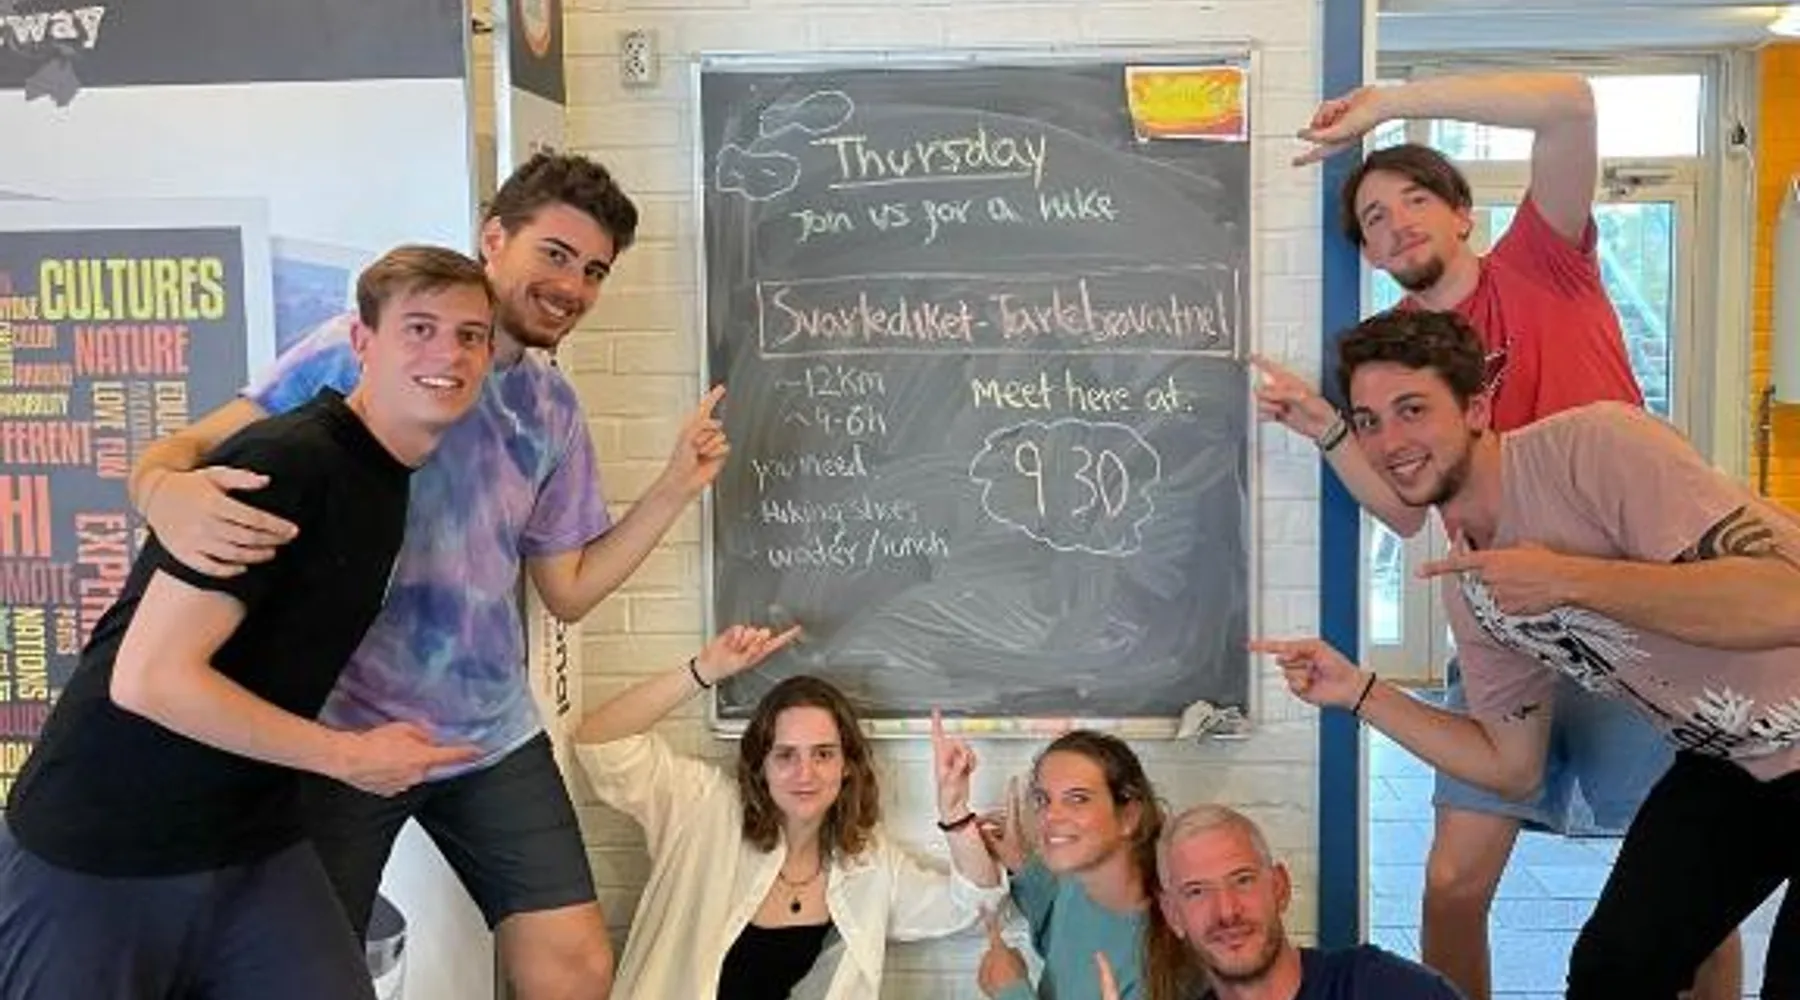 rway
CULTURES
NATURE
LOVE
FUN
NATIONS
Thursday
Join us for a hike
Svartediket - Tarlebøvatnet
~12km
~4-6h
you need:
- Hiking shoes
- water/lunch
Meet here at:
9 30